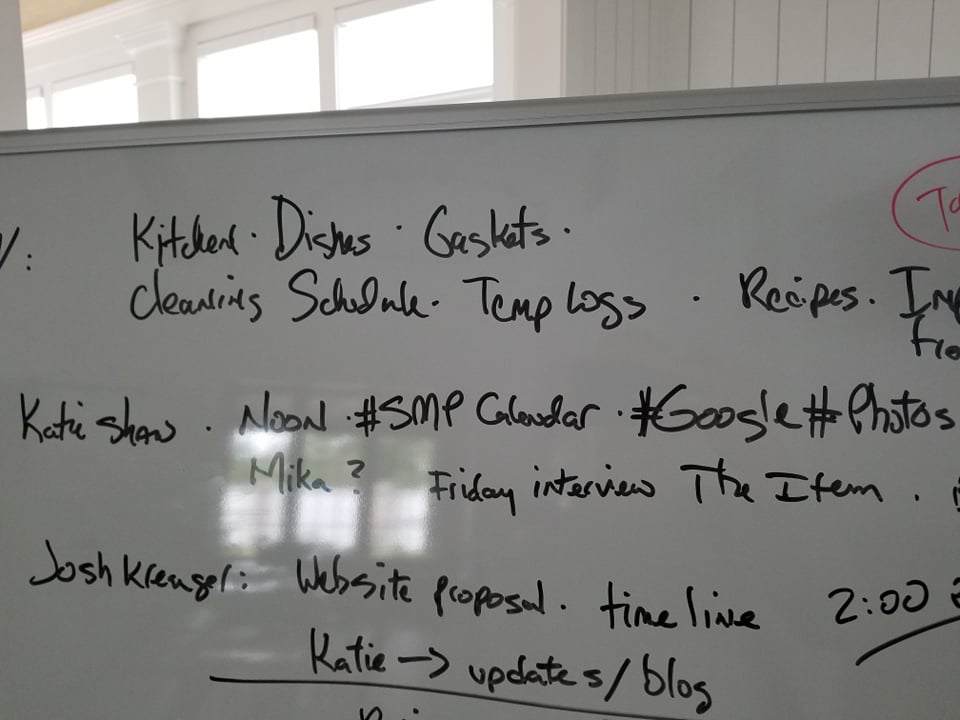 Kitchen · Dishes · Gaskets.
Cleaning Schedule. Temp Logs . Recipes.
Katie Shaw . Noon · #SMP Calendar · #Google # Photos
Mika? Friday interview The Item .
Josh Krengel: Website proposal. timeline 2:00
Katie → updates/blog